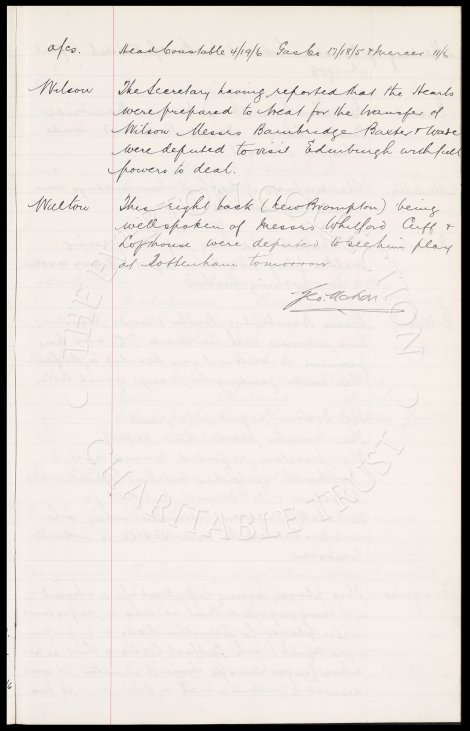 a/cs. Head Constable 4/19/6 Gas Co 17/18/5 & Mercer 11/6
Wilson The Secretary having reported that the Hearts
were prepared to treat for the transfer of
Wilson Messrs Bainbridge Baxter & Wade
were deputed to visit Edinburgh with full
powers to deal.
Walton This right back (New Brompton) being
well spoken of Messrs Whitford Cuff &
Lofthouse were deputed to see him play
at Tottenham tomorrow
Geo. Mahon
THE EVERTON COLLECTION
CHARITABLE TRUST